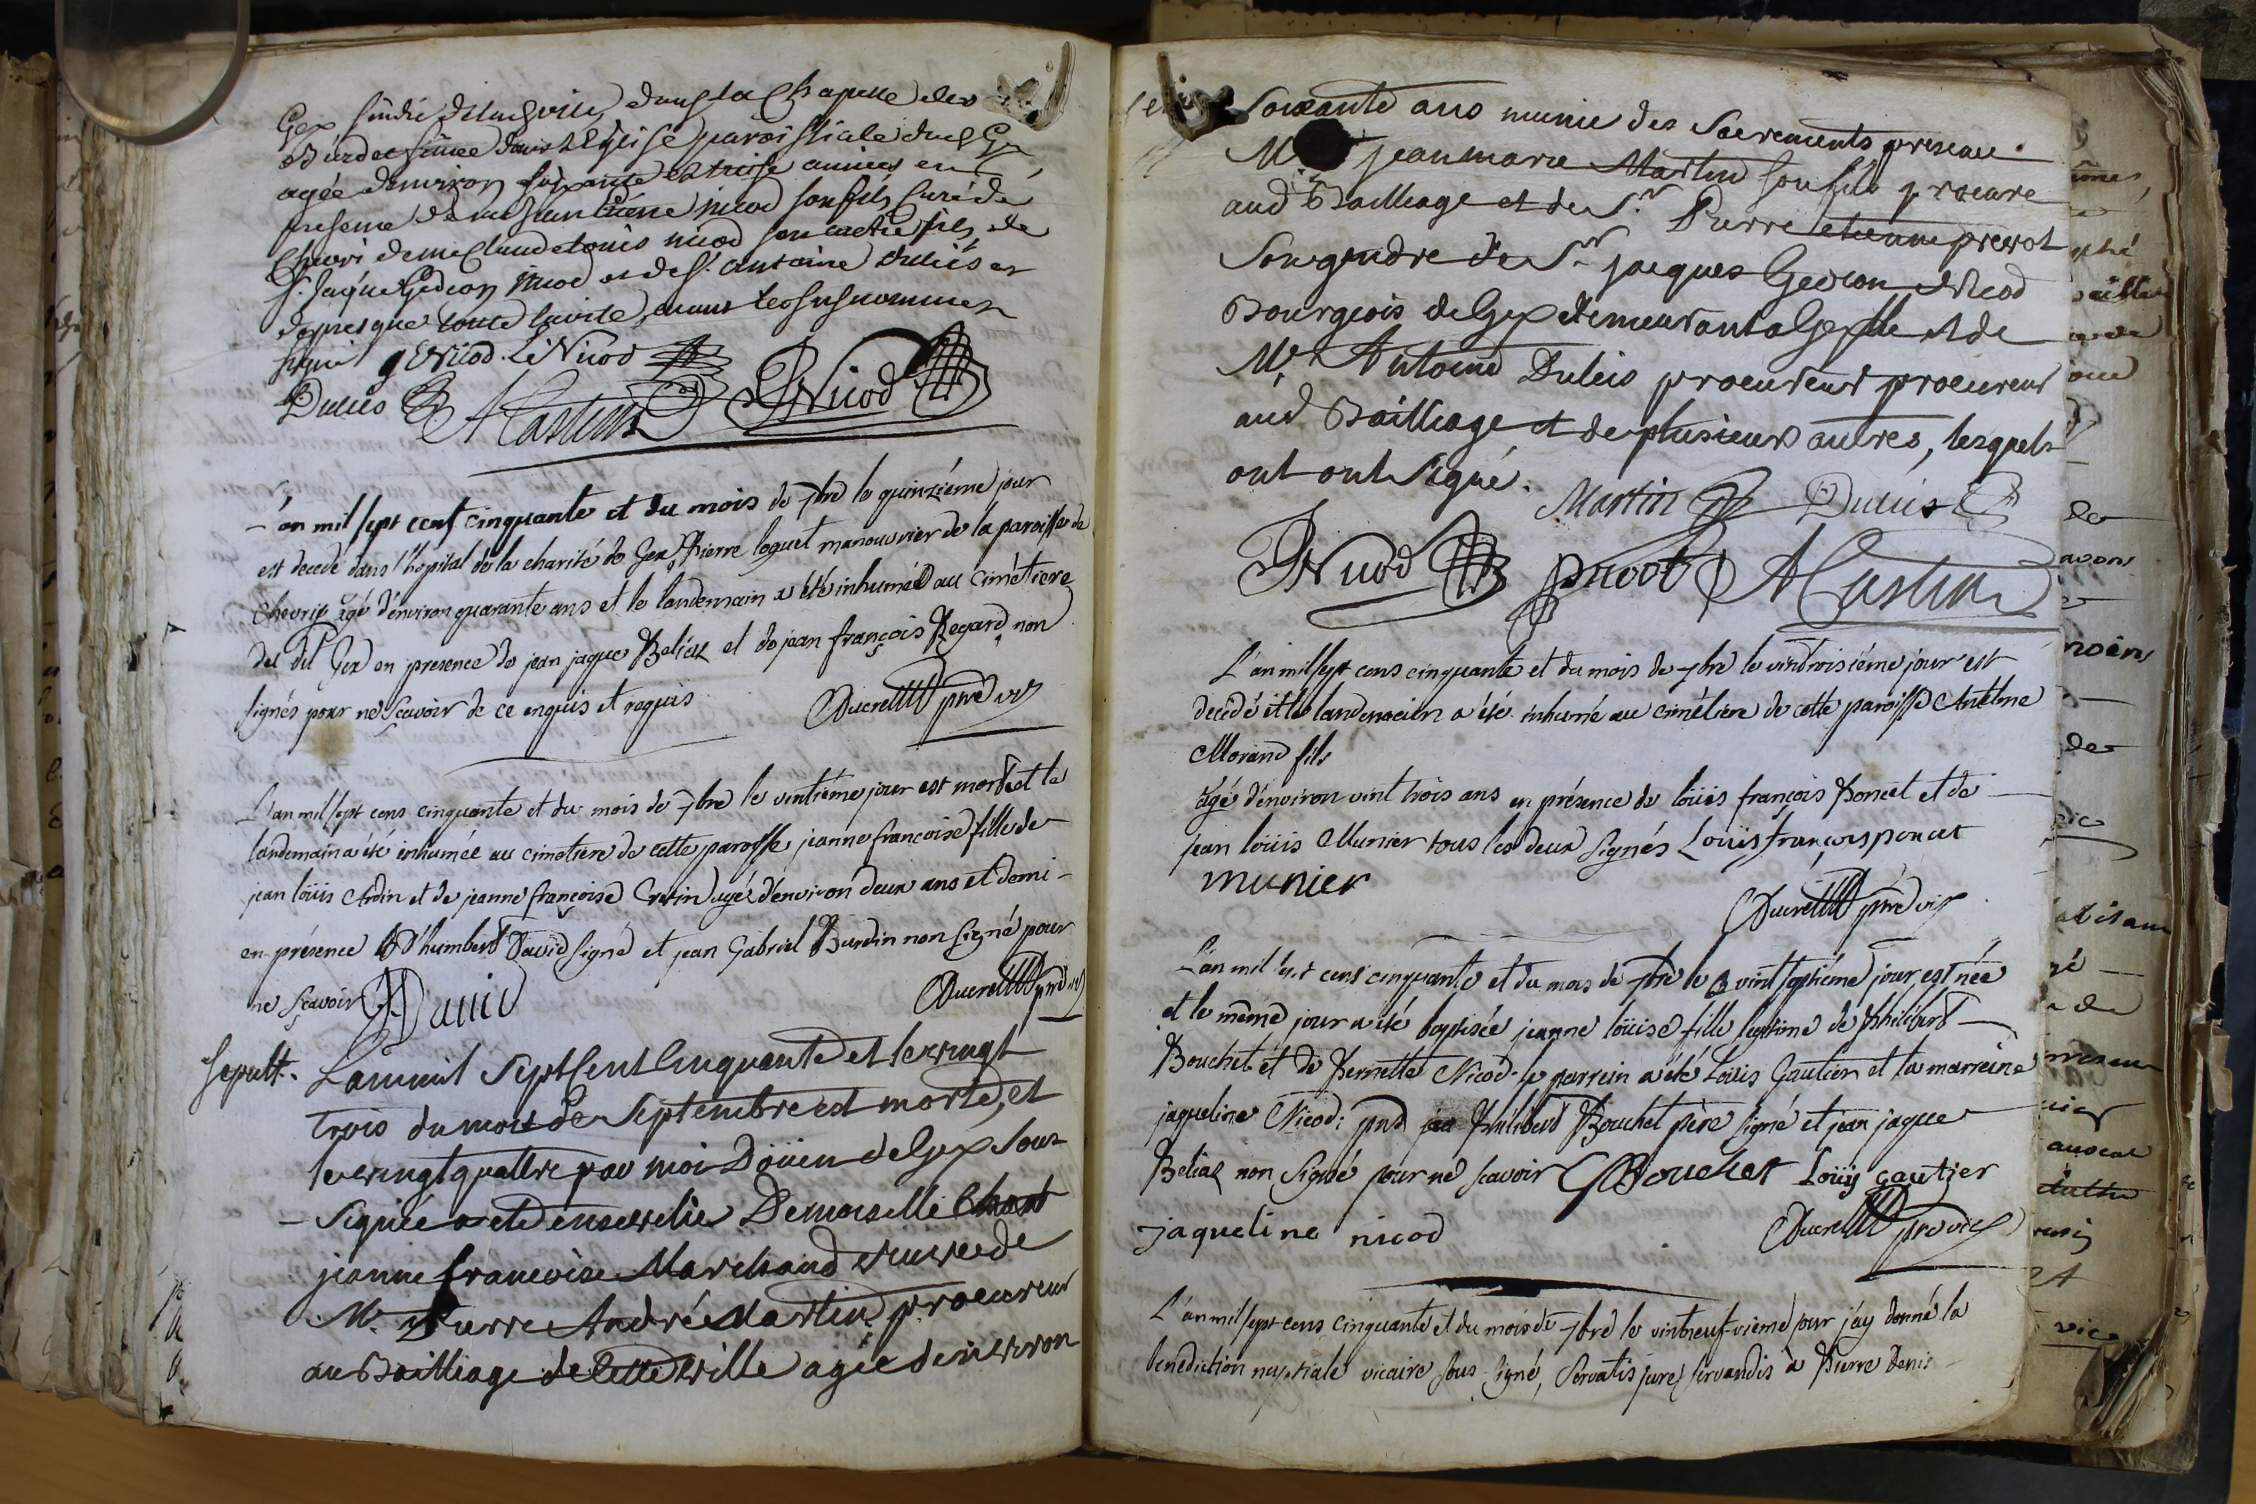 Gex sindic de lad ville, dans la Chapelle des
Burdet située dans L'Eglise paroissiale dud Gex
agée d'environ soixante et treise années en
presence de me jean Pierre nicod son fils Curé de
Chevri de me Claude Louis nicod son autre fils, de
Sr. Jaque Gedeon nicod et de Sr. antoine Duclis et
de presque toute la ville, avant les susnommés
signé g E Nicod L. Nicod
Duclis Martin Nicod
L'an mil sept cent cinquante et du mois de 7bre le quinziéme jour
est decede dans l'hopital de la charité de Gex, Pierre loquet manouvrier de la paroisse de
Chevrÿ agé d'environ quarante ans et le landemain a été inhumé au cimétiere
dud Gex en presence de jean jaque Beliaz et de jean françois Regard non
signés pour ne sçavoir de ce enquis et requis
Ducrettt pre vic
L'an mil sept cens cinquante et du mois de 7bre le vintiéme jour est morte et le
landemain a été inhumée au cimetiere de cette paroisse jeanne françoise fille de
jean loüis Ardin et de jeanne françoise Cretin agée d'environ deux ans et demi
en présence d'humbert David signé et jean Gabriel Burdin non signé pour
ne sçavoir David
Ducrettt pre vic
Sepult.
L'an mil Sept Cent Cinquante et le vingt
trois du mois de Septembre est morte, et
le vingt quattre par moi Doüen de Gex sous
Signée a eté ensevelie Demoiselle
jeanne françoise Marchand veuve de
Mr. Pierre André Martin, procureur
au Bailliage de Cette ville agée d'environ
Soixante ans munie des Sacrements presence
Me jean marie Martin son fils procure
aud Bailliage et de Sr. Pierre etienne prevot
Son gendre de Sr. jacques Gedeon Nicod
Bourgeois de Gex demeurant a Gex et de
Mr. Antoine Duclis procureur procureur
aud Bailliage et de plusieurs autres, lesquels
ont ont Signé.
Martin Duclis
Nicod prevot Martin
L'an mil sept cens cinquante et du mois de 7bre le vintroisiéme jour est
decédé et le landemain a été inhumé au cimétiere de cette paroisse Antelme
Morand fils
agé d'environ vint trois ans en présence de loüis françois Poncet et de
jean loüis Munier tous les deux signés Loüis françois poncet
munier
Ducrettt pre vic
L'an mil sept cens cinquante et du mois de 7bre le vint septiéme jour est née
et le même jour a été baptisée jeanne loüise fille legitime de Philibert
Bouchet et de Pernette Nicod. le parrein a été Loüis Gautier et la marreine
jaqueline Nicod: pnd Philibert Bouchet père signé et jean jaque
Beliaz non signé pour ne scavoir Bouchet Loüis gautier
jaqueline nicod
Ducrettt pre vic
L'an mil sept cens cinquante et du mois de 7bre le vintneuf vieme jour j'ay donné la
benediction nuptiale vicaire sous signé, servatis jure servandis à Pierre Denis